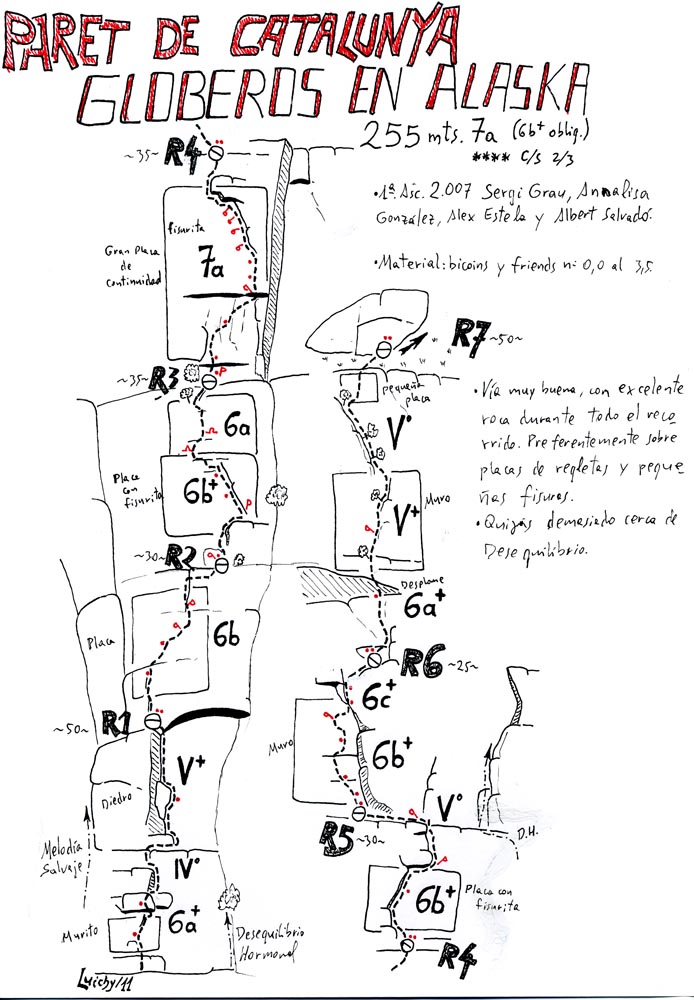 PARET DE CATALUNYA
GLOBEROS EN ALASKA
255 mts. 7a (6b+ oblig.)
**** C/S 2/3
•1ª Asc. 2.007 Sergi Grau, Annalisa
González, Alex Estela y Albert Salvadó.
•Material: bicoins y friends nº 0,0 al 3,5.
•Vía muy buena, con excelente
roca durante todo el reco
rrido. Preferentemente sobre
placas de regletas y peque
ñas fisuras.
•Quizás demasiado cerca de
Desequilibrio.
~35~ R4
fisurita
7a
Gran Placa
de
continuidad
~35~ R3
P
6a
6b+
Placa
con
fisurita
~30~ R2
6b
Placa
~50~ R1
V+
Diedro
Melodía
Salvaje
IVº
6a+
Murito
Desequilibrio
Hormonal
Luichy/11
R7 ~50~
pequeña
placa
Vº
V+
Muro
Desplome
6a+
R6 ~25~
6c+
Muro
6b+
Vº
R5 ~30~
D.H.
6b+
Placa con
fisurita
R4